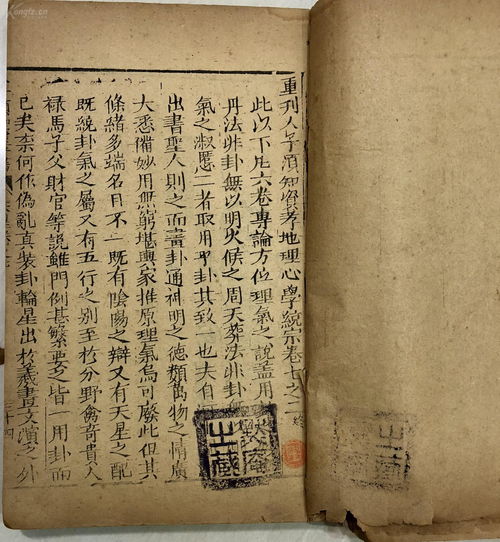 重刊人子須知資孝地理心學統宗卷七之二終
此以下凡六卷專論方位理氣之說蓋用
丹法非卦無以明火候之周天葬法非卦無
氣之淑慝二者取用卽卦其致一也夫自
出書聖人則之而畫卦通神明之德類萬物之情廣
大悉備妙用無窮堪輿家推原理氣烏可廢此但其
條緒多端名目不一既有陰陽之辯又有天星之配
既統卦氣之屬又有五行之別至於分野禽奇貴人
祿馬子父財官等說雖門例甚繁要之皆一用卦而
已矣柰何作偽亂真裝卦輪星出於羲畫文演之外
三十四
庵之藏
之藏
kongfz.cn